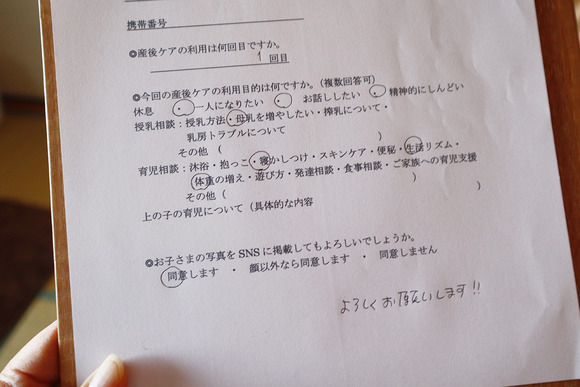 携帯番号
◎産後ケアの利用は何回目ですか。
1 回目
◎今回の産後ケアの利用目的は何ですか。(複数回答可)
休息 ・ 一人になりたい ・ お話ししたい ・ 精神的にしんどい
授乳相談：授乳方法・母乳を増やしたい・搾乳について・
乳房トラブルについて
その他（ ）
育児相談：沐浴・抱っこ・寝かしつけ・スキンケア・便秘・生活リズム・
体重の増え・遊び方・発達相談・食事相談・ご家族への育児支援
その他（ ）
上の子の育児について（具体的な内容 ）
◎お子さまの写真を SNS に掲載してもよろしいでしょうか。
同意します ・ 顔以外なら同意します ・ 同意しません
よろしくお願いします!!